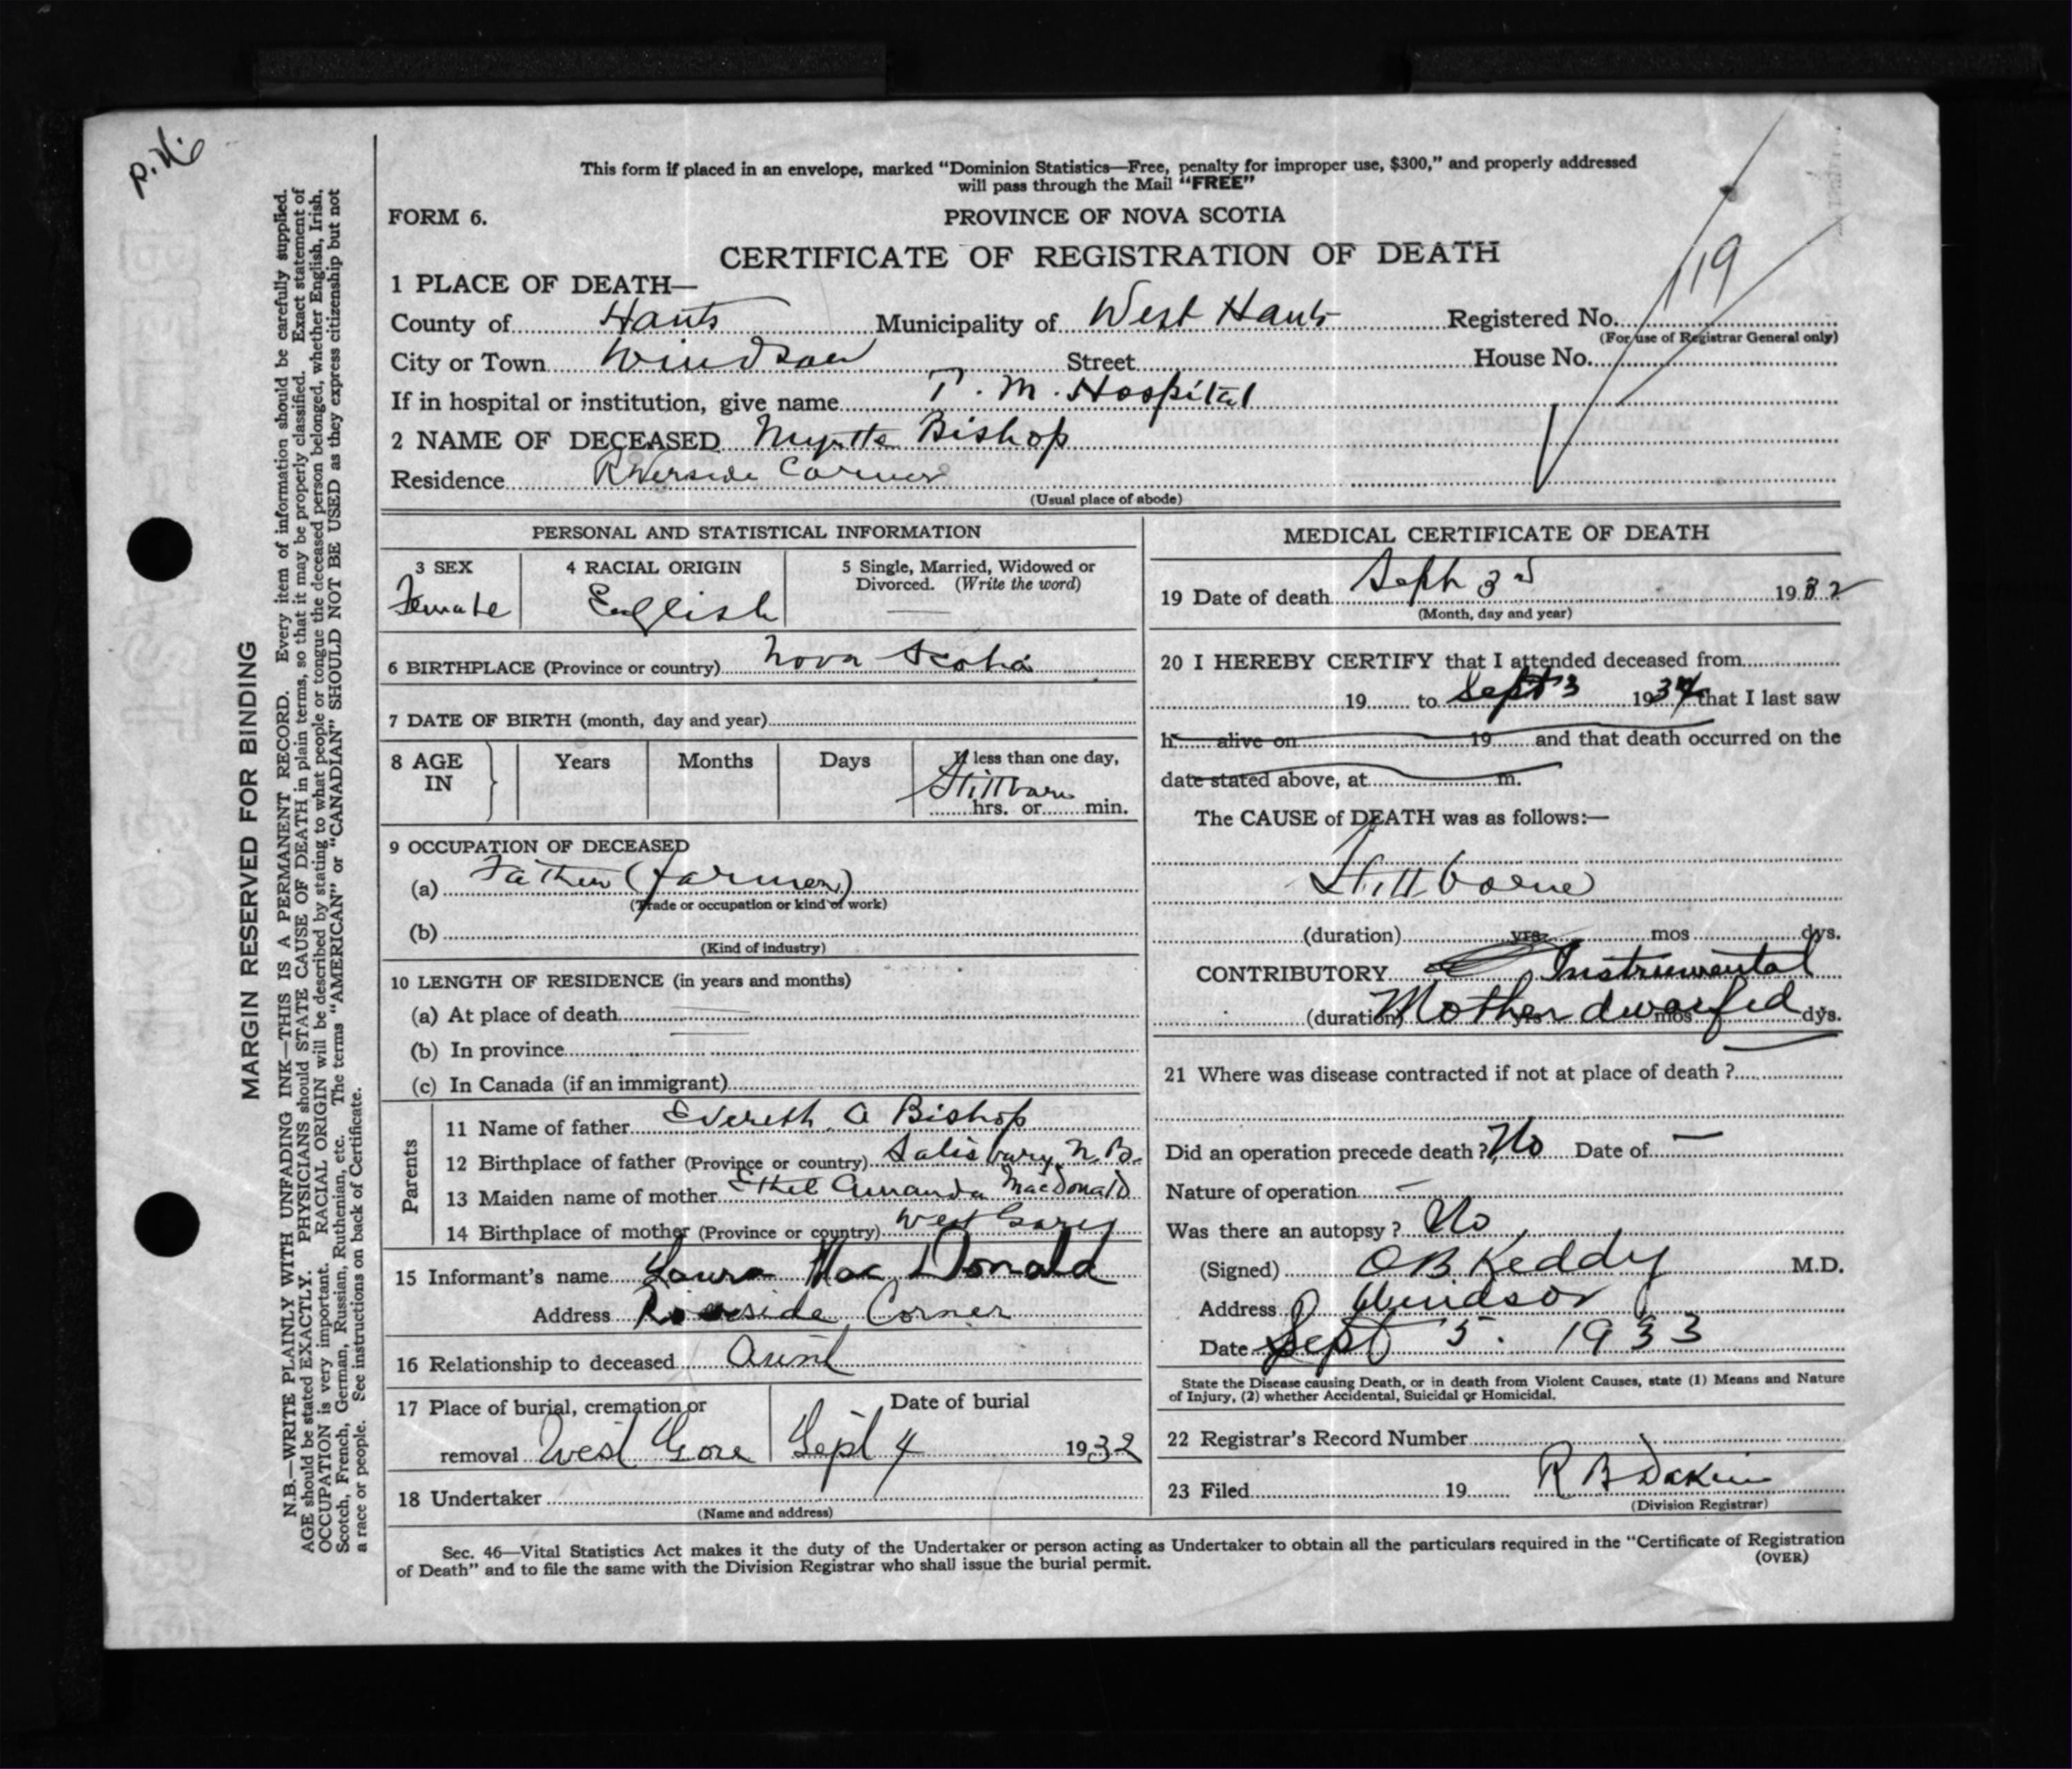 P.H.
This form if placed in an envelope, marked “Dominion Statistics—Free, penalty for improper use, $300,” and properly addressed
will pass through the Mail “FREE”
FORM 6.
PROVINCE OF NOVA SCOTIA
CERTIFICATE OF REGISTRATION OF DEATH
119
1 PLACE OF DEATH—
County of Hants Municipality of West Hants Registered No.
(For use of Registrar General only)
City or Town Windsor Street House No.
If in hospital or institution, give name P. M. Hospital
2 NAME OF DECEASED Myrtle Bishop
Residence Riverside Corner
(Usual place of abode)
PERSONAL AND STATISTICAL INFORMATION
3 SEX 4 RACIAL ORIGIN 5 Single, Married, Widowed or
Divorced. (Write the word)
Female English
6 BIRTHPLACE (Province or country) Nova Scotia
7 DATE OF BIRTH (month, day and year)
8 AGE IN Years Months Days If less than one day,
Stillborn
hrs. or min.
9 OCCUPATION OF DECEASED
(a) Father (farmer)
(Trade or occupation or kind of work)
(b)
(Kind of industry)
10 LENGTH OF RESIDENCE (in years and months)
(a) At place of death
(b) In province
(c) In Canada (if an immigrant)
Parents
11 Name of father Evereth A Bishop
12 Birthplace of father (Province or country) Salisbury, N.B.
13 Maiden name of mother Ethel Amanda MacDonald
14 Birthplace of mother (Province or country) West Gore
15 Informant's name Laura MacDonald
Address Riverside Corner
16 Relationship to deceased Aunt
17 Place of burial, cremation or Date of burial
removal West Gore Sept 4 1932
18 Undertaker
(Name and address)
MEDICAL CERTIFICATE OF DEATH
19 Date of death Sept 3rd 1932
(Month, day and year)
20 I HEREBY CERTIFY that I attended deceased from
19 to Sept 3 193 that I last saw
h alive on 19 and that death occurred on the
date stated above, at m.
The CAUSE of DEATH was as follows:—
Stillborne
(duration) yrs mos dys.
CONTRIBUTORY Instrumental
(duration) Mother dwarfed yrs mos dys.
21 Where was disease contracted if not at place of death?
Did an operation precede death? No Date of —
Nature of operation —
Was there an autopsy? No
(Signed) O B. Keddy M.D.
Address Windsor
Date Sept 5. 1933
State the Disease causing Death, or in death from Violent Causes, state (1) Means and Nature
of Injury, (2) whether Accidental, Suicidal or Homicidal.
22 Registrar's Record Number
23 Filed 19 R B Dakin
(Division Registrar)
Sec. 46—Vital Statistics Act makes it the duty of the Undertaker or person acting as Undertaker to obtain all the particulars required in the “Certificate of Registration
of Death” and to file the same with the Division Registrar who shall issue the burial permit.
(OVER)
MARGIN RESERVED FOR BINDING
N.B.—WRITE PLAINLY WITH UNFADING INK—THIS IS A PERMANENT RECORD. Every item of information should be carefully supplied.
AGE should be stated EXACTLY. PHYSICIANS should STATE CAUSE OF DEATH in plain terms, so that it may be properly classified. Exact statement of
OCCUPATION is very important. RACIAL ORIGIN will be described by stating to what people or tongue the deceased person belonged, whether English, Irish,
Scotch, French, German, Russian, Ruthenian, etc. The terms “AMERICAN” or “CANADIAN” SHOULD NOT BE USED as they express citizenship but not
a race or people. See instructions on back of Certificate.